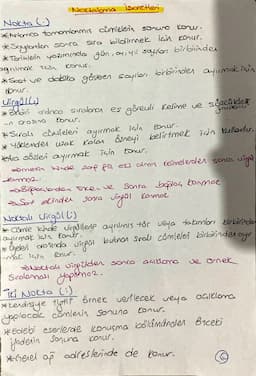 Noktalama İşaretleri
Nokta (.)
* Anlamca tamamlanmış cümlenin sonuna konur.
* Sayılardan sonra sıra bildirmek için konur.
* Tarihlerin yazımında gün, ay, yıl sayıları birbirinden
ayırmak için konur.
* Saat ve dakika gösteren sayıları birbirinden ayırmak için
konur.
Virgül (,)
* Birbiri ardınca sıralanan eş görevli kelime ve sözcüklerin
arasına konur.
* Sıralı cümleleri ayırmak için konur.
* Yüklemden uzak kalan özneyi belirtmek için kullanılır.
Ara sözleri ayırmak için konur.
sonra virgül
konmaz.
önce ve sonra bağlaç konmaz
* Şart ekinden sonra virgül konmaz
Noktalı Virgül (;)
* Cümle içinde virgüllerle ayrılmış tür veya takımları birbirinden
ayırmak için konur.
* Ögeleri arasında virgül bulunan sıralı cümleleri birbirinden ayır
mak için konur.
* Noktalı virgülden sonra açıklama ve örnek
sıralaması yapılmaz.
İki Nokta (:)
* Kendisiyle ilgili örnek verilecek veya açıklama
yapılacak cümlenin sonuna konur.
* Edebi eserlerde konuşma bölümünden önceki
ifadenin sonuna konur.
* Genel ağ adreslerinde de konur.
6